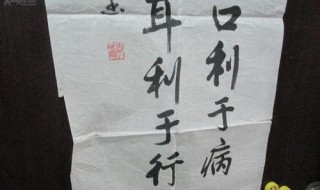 口利于病
耳利于行